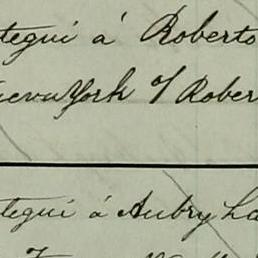 tegui á Roberto
uevaYork S/ Rober
tegui á Aubry La